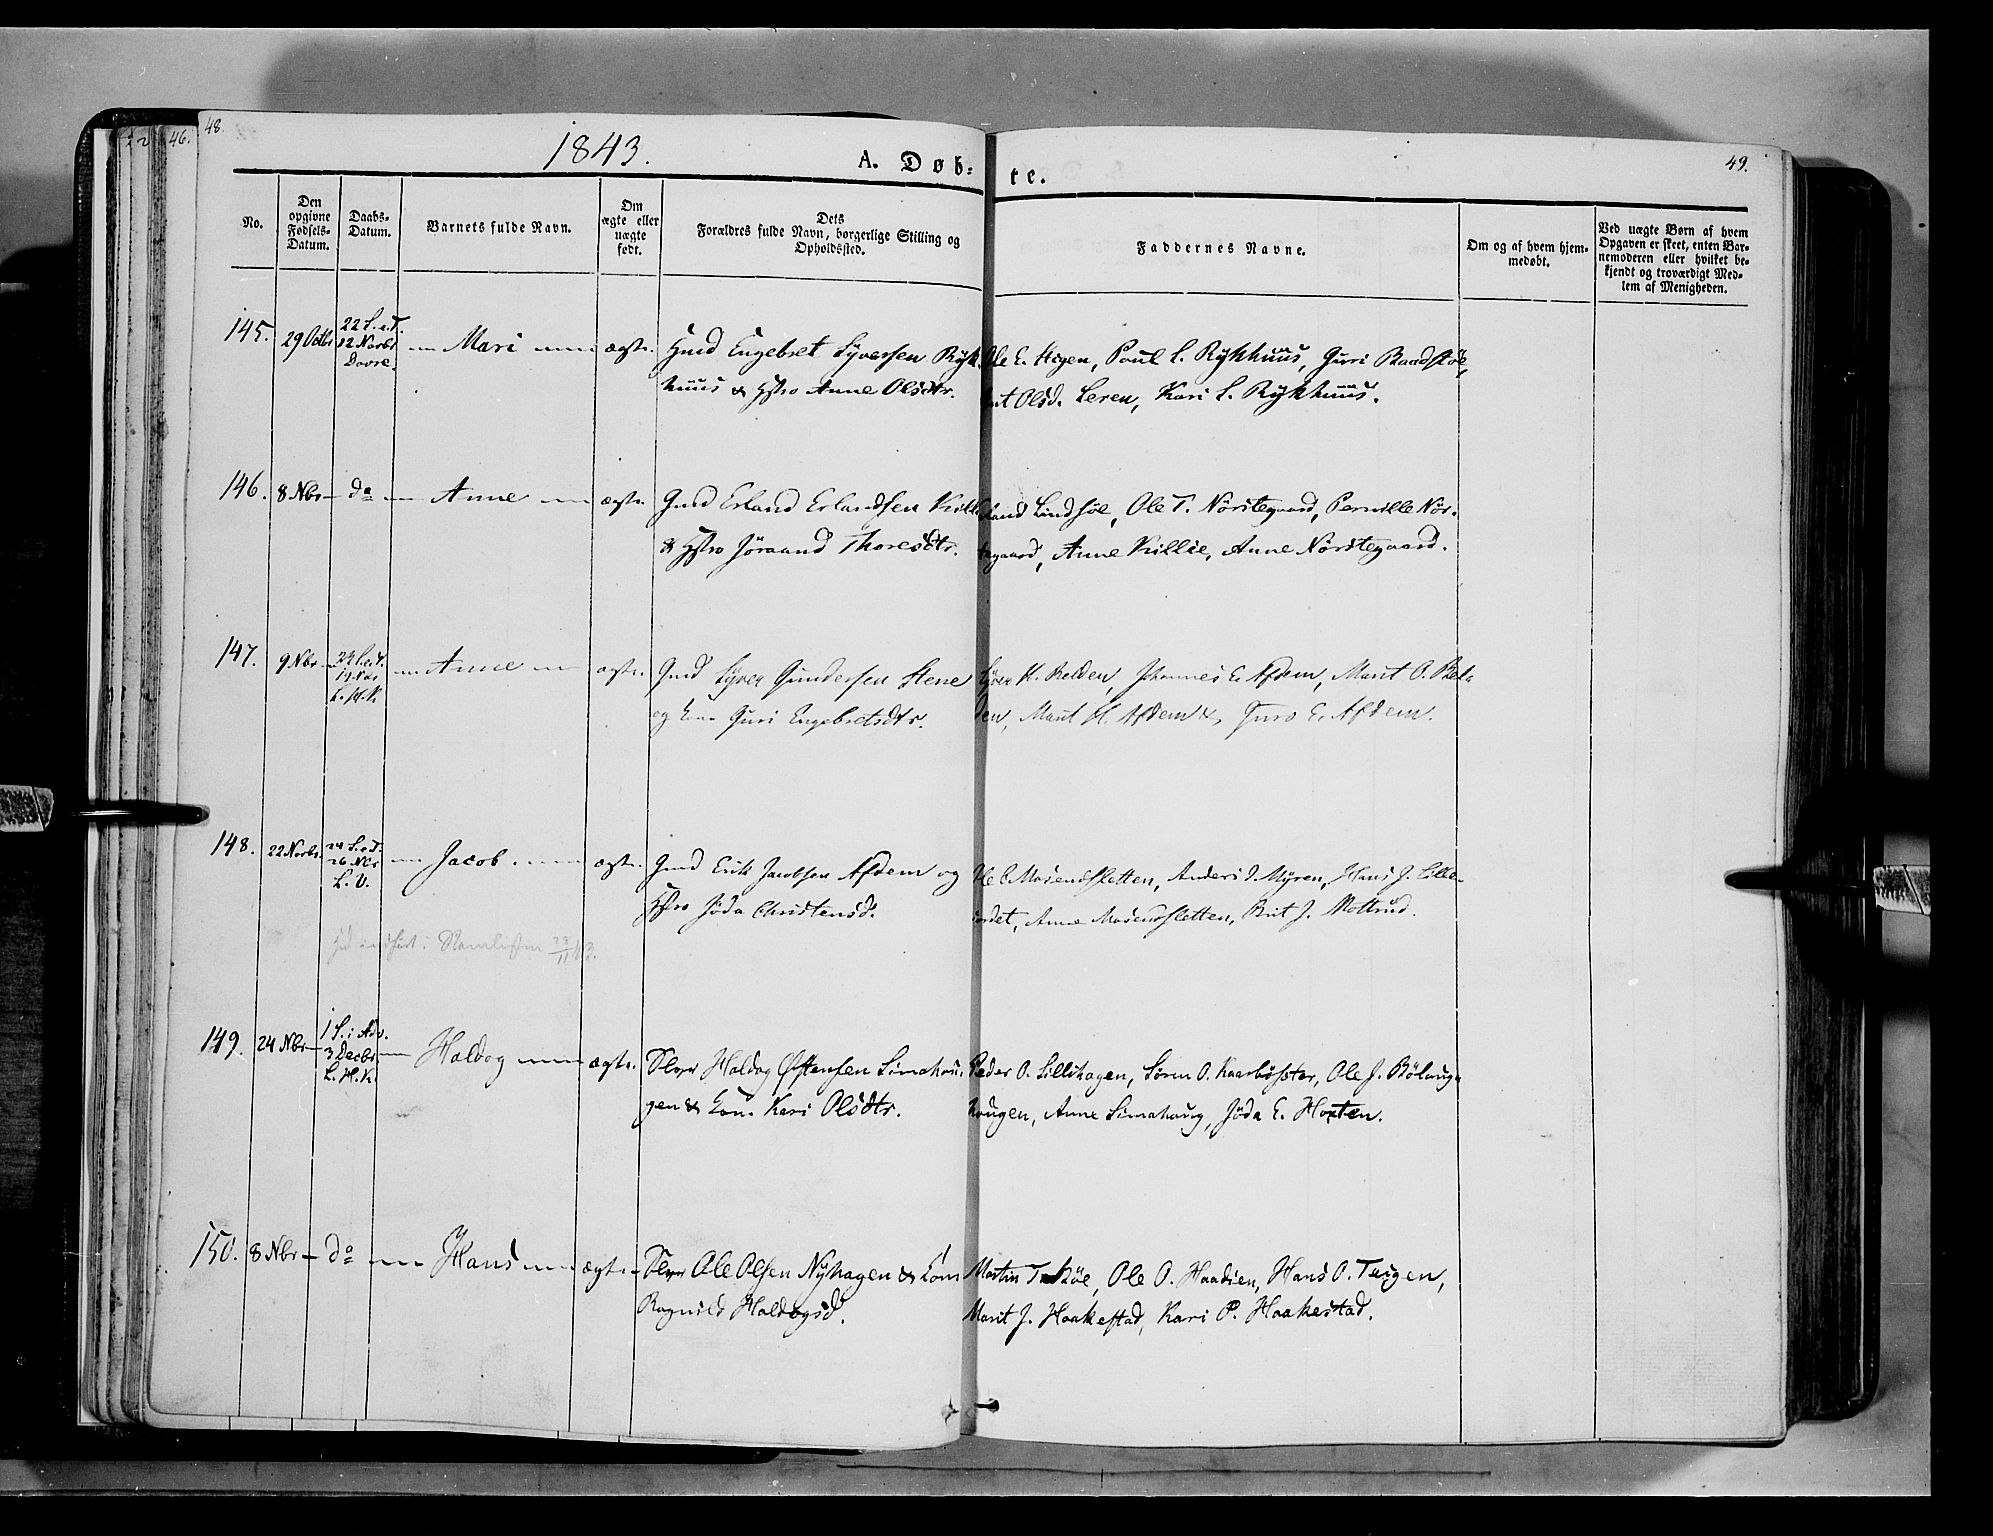 46.
48.
1843.
A. Døb-
te.
49.
No.
Den opgivne Fødsels-Datum.
Daabs-Datum.
Barnets fulde Navn.
Om ægte eller uægte født.
Dets Forældres fulde Navn, borgerlige Stilling og Opholdssted.
Faddernes Navne.
Om og af hvem hjem-medøbt.
Ved uægte Børn af hvem Opgaven er skeet, enten Bar-nemoderen eller hvilket be-kjendt og troværdigt Med-lem af Menigheden.
145. 29 Octbr 22 S. e. T. 12 Novbr Dovre. Mari ægte. Gmd Engebret Syversen Rykhuus & Hstro Anne Olsdtr.
Ole E. Hagen, Poul L. Rykhuus, Guri Baadstøe,
Brit Olsd. Leren, Kari L. Rykhuus.
146. 8 Nbr do Anne ægte. Gmd Erland Erlandsen Killi
& Hstro Jøraand Thoresdtr.
Erland Lindsøe, Ole T. Nörstegaard, Pernille Nör-
stegaard, Anne Killie, Anne Nörstegaard.
147. 9 Nbr 23 S. e. T. 19 Nov L. H. K Anne ægte. Gmd Syver Gundersen Stene
og Kone Guri Engebretsdtr.
Syver K. Belden, Johannes E. Afdem, Marit O. Bel-
den, Marit H. Afdem &, Guro E. Afdem.
148. 22 Novbr. 24 S. e. T. 26 Nbr L. V. Jacob. ægte. Gmd Erik Jacobsen Afdem og
Hstro Jøda Christensd.
Ole C. Mosendsletten, Anders I. Myren, Hans J. Lille-
jordet, Anne Mosendsletten, Brit J. Mottrud.
149. 24 Nbr 1 S. i Adv. 3 Decbr L. H. K. Haldog ægte. Haldog Østensen Limahou-
gen & Kone Kari Olsdtr.
Peder O. Lillehagen, Søren O. Kaarbösæter, Ole J. Bölung-
hougen, Anne Limahoug, Jöda E. Horten.
150. 8 Nbr do Hans ægte Ole Olsen Nyhagen & Kone
Ragnild Haldogsd.
Martin T. Böe, Ole O. Haadien, Hans O. Teigen,
Marit J. Haakestad, Kari P. Haakestad.